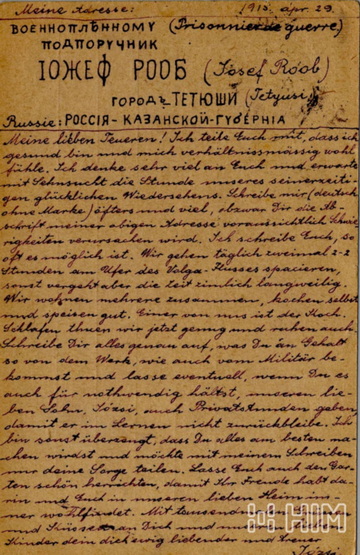 Meine Adresse: 1915. apr. 29.
ВОЕННОПЛѢННОМУ (Prisonnier de guerre)
ПОДПОРУЧНИК
ІОЖЕФ РООБ (József Roób)
ГОРОДЪ ТЕТЮШИ (Tetyusi)
Russie: РОССІЯ - КАЗАНСКОЙ-ГУБЕРНІА
Meine lieben Teueren! Ich teile Euch mit, dass ich
gesund bin und mich verhältnissmässig wohl
fühle. Ich denke sehr viel an Euch und erwarte
mit Sehnsucht die Stunde unseres seinerzeiti-
gen glücklichen Wiedersehens. Schreibe mir (deutsch
ohne Marke) öfters und viel, obzwar Dir die Ab-
schrift meiner obigen Adresse voraussichtlich Schwie-
rigkeiten verursachen wird. Ich schreibe Euch, so
oft es möglich ist. Wir gehen täglich zweimal 2-2
Stunden am Ufer des Volga-Flusses spacieren,
sonst vergeht aber die Zeit zimlich langweilig.
Wir wohnen mehrere zusammen, kochen selbst
und speisen gut. Einer von uns ist der Koch.
Schlafen thuen wir jetzt genug und ruhen auch.
Schreibe Dir alles genau auf, was Du an Gehalt
so von dem Werk, wie auch vom Militär be-
kommst und lasse eventuell, wenn Du es
auch für nothwendig hältst, unseren lie-
ben Sohn, Józsi, auch Privatstunden geben,
damit er im Lernen nicht zurückbleibe. Ich
bin sonst überzeugt, dass Du alles am besten ma-
chen wirdst und möchte mit meinem Schreiben
nur deine Sorge teilen. Lasse Euch auch den Gar-
ten schön herrichten, damit Ihr Freude habt da-
rin und Euch in unseren lieben Heim im-
mer wohlfindet. Mit tausend
und Küssen an Dich und
Kinder dein dich ewig liebender und treuer
Józsi
HIM